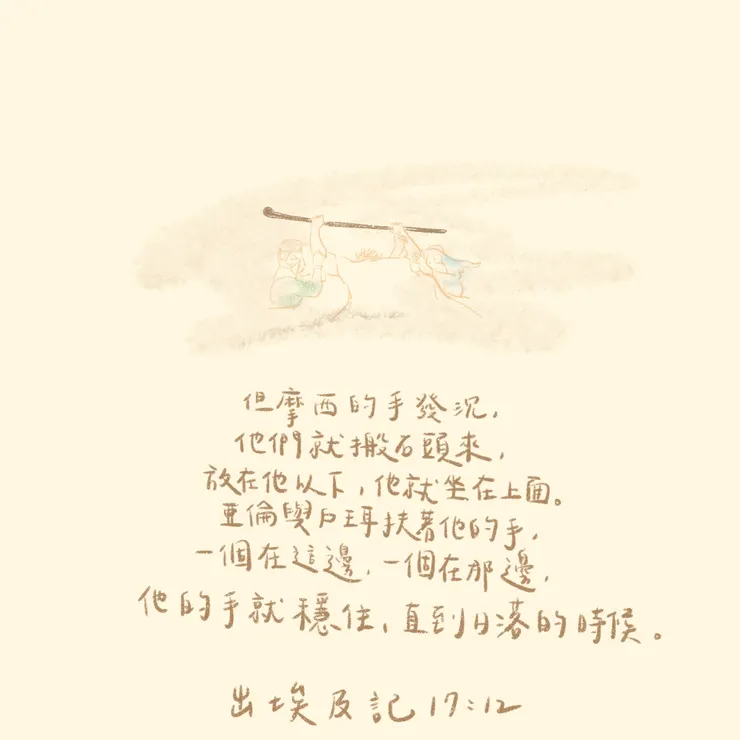 但摩西的手發沉,
他們就搬石頭來,
放在他以下,他就坐在上面。
亞倫與戶珥扶著他的手,
一個在這邊,一個在那邊,
他的手就穩住,直到日落的時候。
出埃及記 17:12